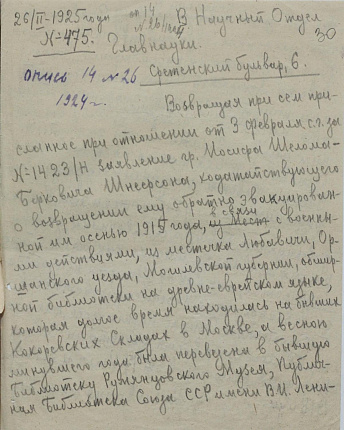 26/II-1925 года оп 14 В Научный Отдел
№-475. №26/1924 30
Главнауки.
опись 14 №26 Сретенский бульвар, 6.
1924 г.
Возвращая при сем при-
сланное при отношении от 3 февраля с.г. за
№-1423/Н заявление гр. Иосифа Шелома-
Берковича Шнеерсона, ходатайствующего
о возвращении ему обратно эвакуирован-
в связи
ной им осенью 1915 года, из мест с военны-
ми действиями, из местечка Любавичи, Ор-
шанского уезда, Могилевской губернии, обшир-
ной библиотеки на древне-еврейском языке,
которая долгое время находилась на бывших
Кокоревских Складах в Москве, а весною
минувшего года была переведена в бывшую
Библиотеку Румянцовского Музея, Публич-
ная Библиотека Союза ССР имени В.И. Лени-